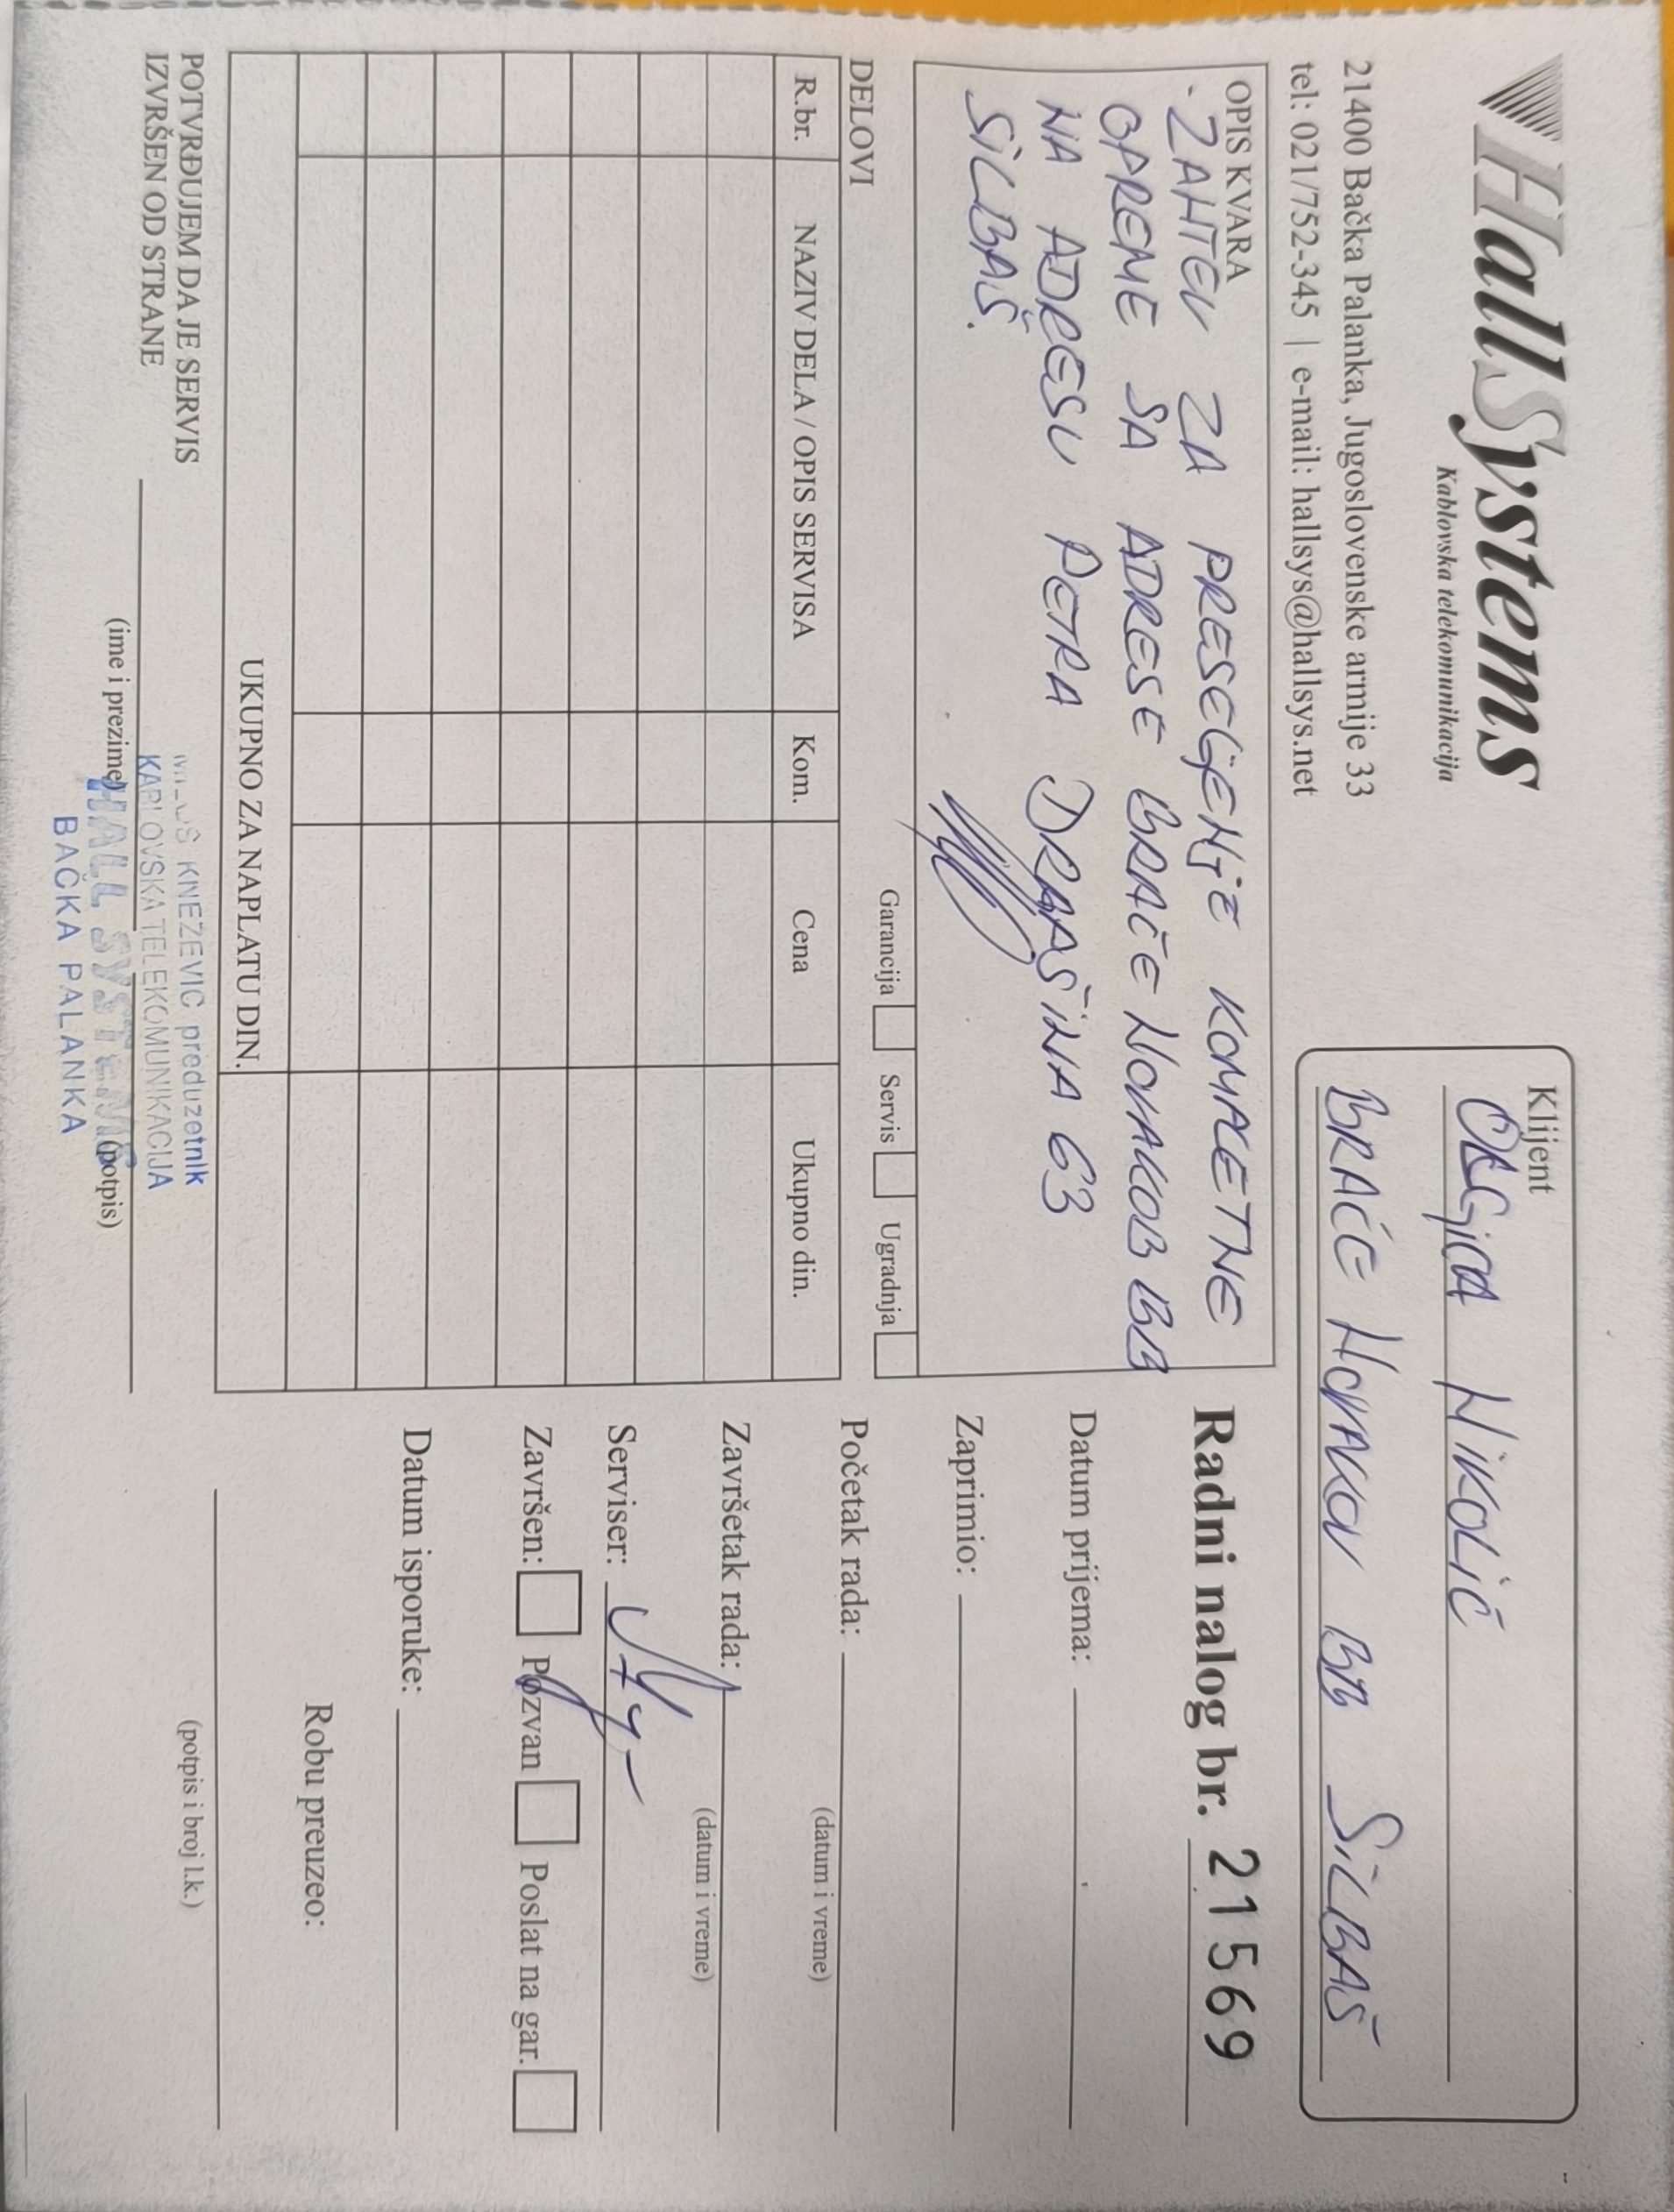 HallSystems
Kablovska telekomunikacija
21400 Bačka Palanka, Jugoslovenske armije 33
tel: 021/752-345 | e-mail: hallsys@hallsys.net
Klijent
Nikolić
BRAĆE NOVAKOV BB SILBAŠ
OPIS KVARA
- ZAHTEV ZA PRESELJENJE KOMPLETNE
OPREME SA ADRESE BRAĆE NOVAKOB BB
NA ADRESU PETRA DRAPŠINA 63
SILBAŠ.
Garancija Servis Ugradnja
DELOVI
R.br. NAZIV DELA / OPIS SERVISA Kom. Cena Ukupno din.
UKUPNO ZA NAPLATU DIN.
POTVRĐUJEM DA JE SERVIS
IZVRŠEN OD STRANE
(ime i prezime)
(potpis)
KNEŽEVIĆ preduzetnik
KABLOVSKA TELEKOMUNIKACIJA
HALL SYSTEMS
BAČKA PALANKA
Radni nalog br. 21569
Datum prijema:
Zaprimio:
Početak rada:
(datum i vreme)
Završetak rada:
(datum i vreme)
Serviser:
Završen: Pozvan Poslat na gar.
Datum isporuke:
Robu preuzeo:
(potpis i broj l.k.)